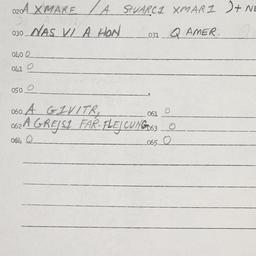 020 A XMARE / A SUARCI XMARI )+ NE
030 NAS VI A HON 031 Q AMER.
040 0
041 0
050 0
060 A GIVITR, 061 0
062 A GREJSI FAR-FLEJCUNG 063 0
064 0 065 0